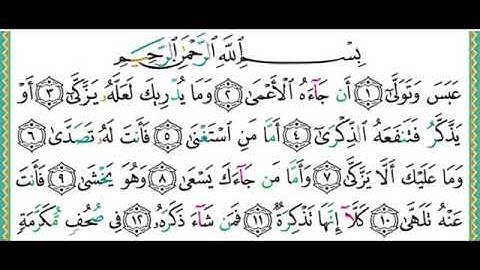 بِسْمِ اللَّهِ الرَّحْمَٰنِ الرَّحِيمِ
عَبَسَ وَتَوَلَّىٰٓ ١ أَن جَآءَهُ ٱلْأَعْمَىٰ ٢ وَمَا يُدْرِيكَ لَعَلَّهُۥ يَزَّكَّىٰٓ ٣ أَوْ
يَذَّكَّرُ فَتَنفَعَهُ ٱلذِّكْرَىٰٓ ٤ أَمَّا مَنِ ٱسْتَغْنَىٰ ٥ فَأَنتَ لَهُۥ تَصَدَّىٰ ٦
وَمَا عَلَيْكَ أَلَّا يَزَّكَّىٰ ٧ وَأَمَّا مَن جَآءَكَ يَسْعَىٰ ٨ وَهُوَ يَخْشَىٰ ٩ فَأَنتَ
عَنْهُ تَلَهَّىٰ ١٠ كَلَّآ إِنَّهَا تَذْكِرَةٌ ١١ فَمَن شَآءَ ذَكَرَهُۥ ١٢ فِى صُحُفٍ مُّكَرَّمَةٍ